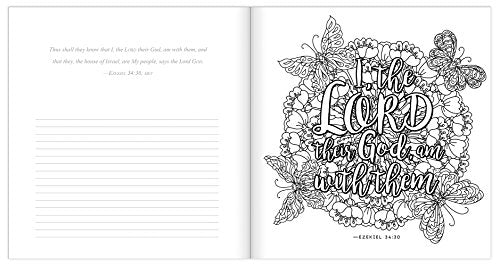 Thus shall they know that I, the LORD their God, am with them, and
that they, the house of Israel, are My people, says the Lord GOD.
—EZEKIEL 34:30, MEV
I, the
LORD
their God, am
with them
—EZEKIEL 34:30